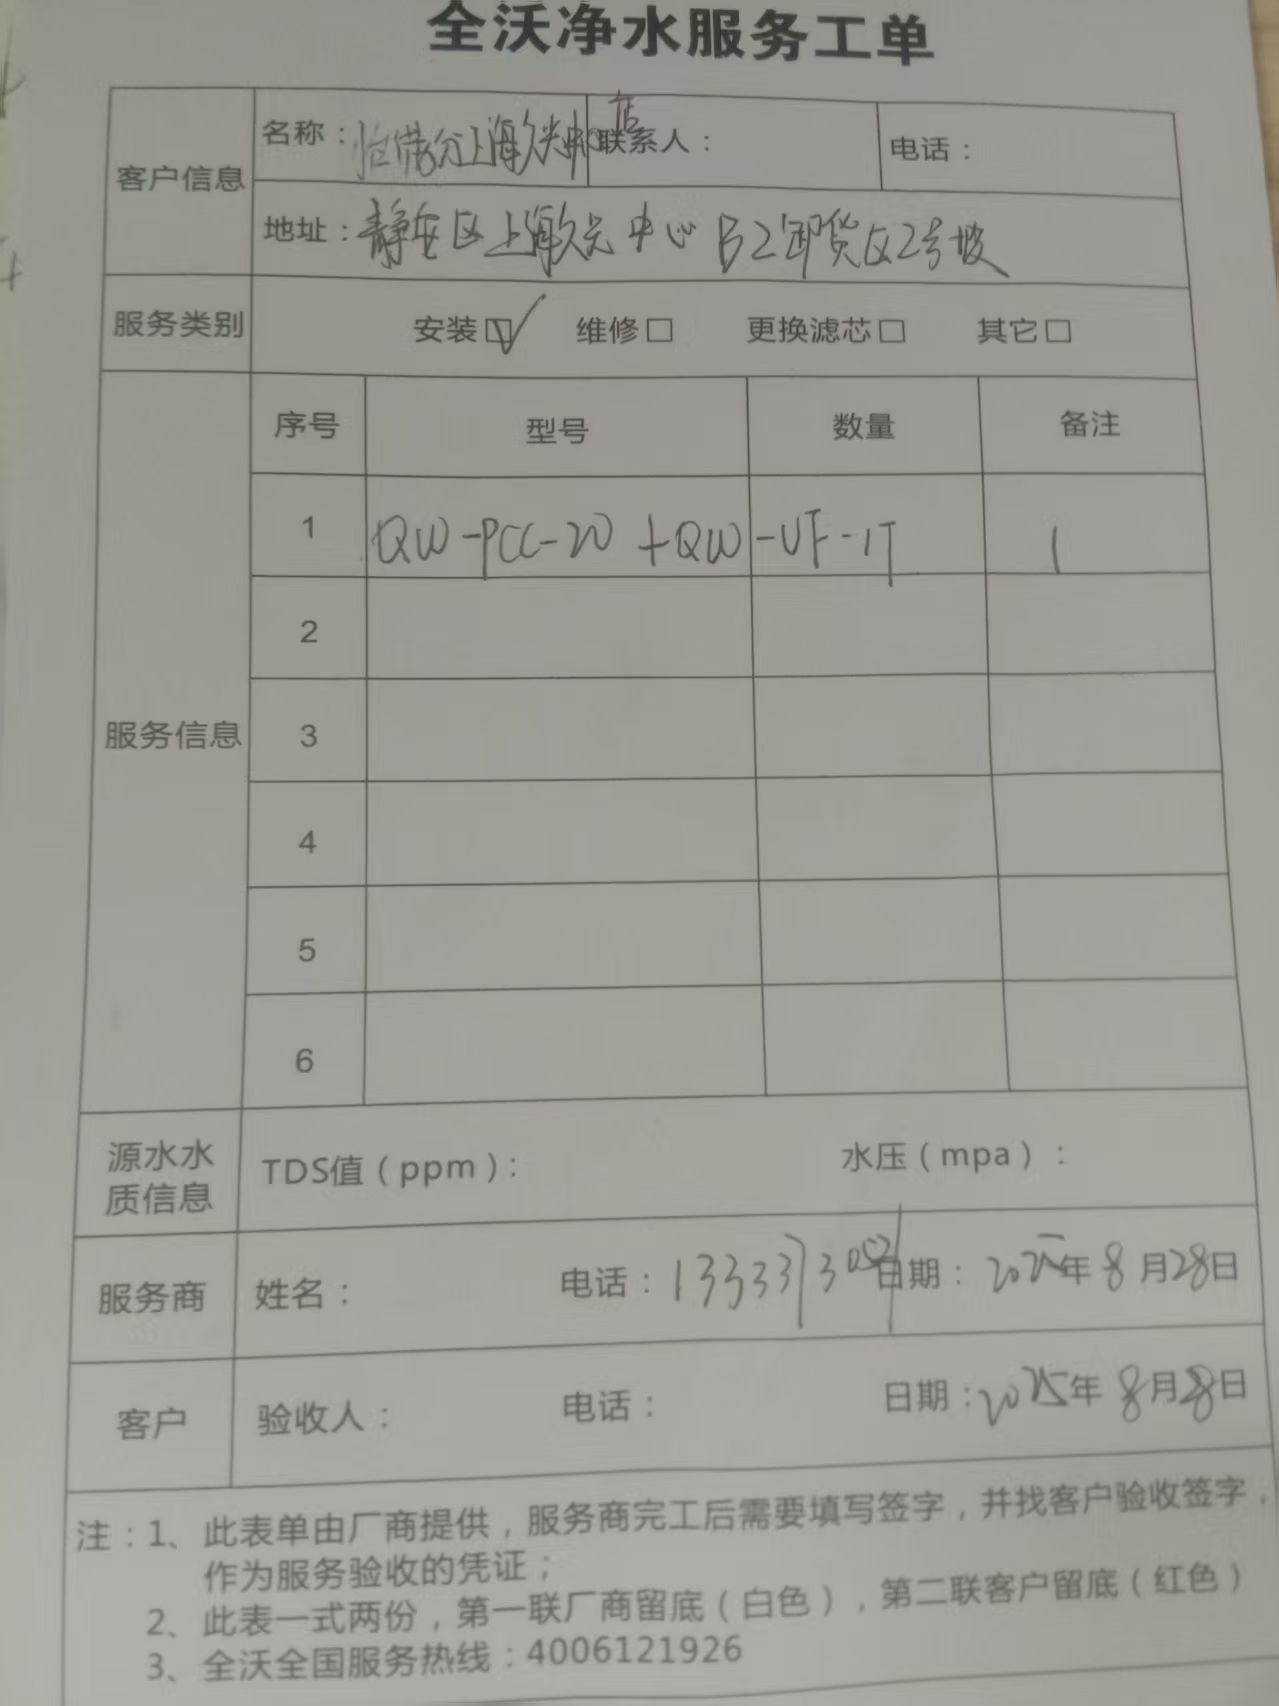 全沃净水服务工单
客户信息
名称： 上海久光中心店
联系人：
电话：
地址：静安区上海久光中心B2卸货区2号坡
服务类别
安装☑ 维修□ 更换滤芯□ 其它□
服务信息
序号 型号 数量 备注
1 QW-PCC-20+QW-UF-1T 1
2
3
4
5
6
源水水质信息
TDS值（ppm）： 水压（mpa）：
服务商
姓名： 电话： 日期：2025年8月28日
客户
验收人： 电话： 日期：2025年8月28日
注：1、此表单由厂商提供，服务商完工后需要填写签字，并找客户验收签字，
作为服务验收的凭证；
2、此表一式两份，第一联厂商留底（白色），第二联客户留底（红色）
3、全沃全国服务热线：4006121926